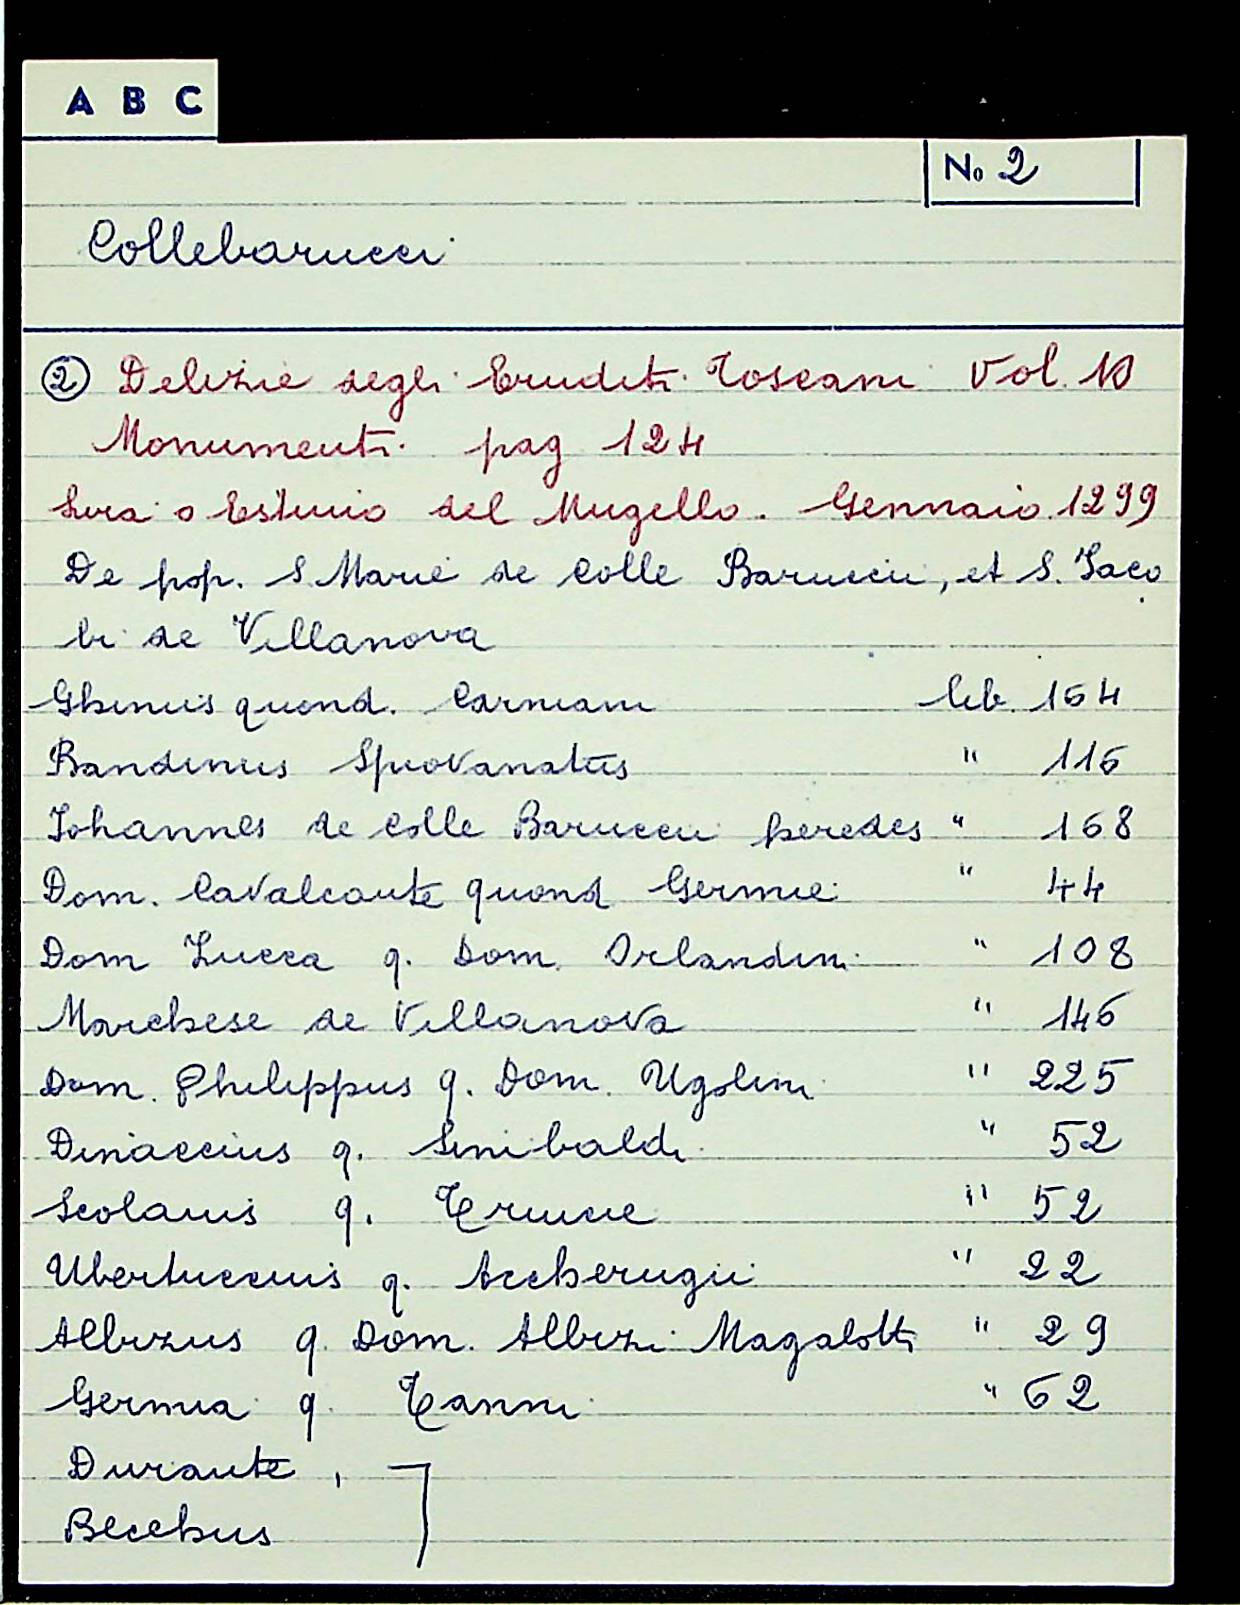 A B C
No 2
Collebarucci
② Delizie degli Eruditi Toscani Vol. 10
Monumenti pag 124
Lira o Estimo del Mugello. Gennaio 1299
De pop. S. Marie de Colle Baruccii, et S. Jaco
bi de Villanova
Ghinus quond. Carniani lib. 164
Bandinus " 116
Johannes de Colle Baruccii heredes " 168
Dom. Cavalcante quond Germie " 44
Dom Lucca q. Dom. Orlandini " 108
Marchese de Villanova " 146
Dom. Philippus q. Dom. Ugolini " 225
Dinaccius q. Sinibaldi " 52
Scolarius q. " 52
Ubertuccius q. Accherugii " 22
Albizus q. Dom. Albizi Magalotti " 29
Germia q. " 62
Durante,
Becchus